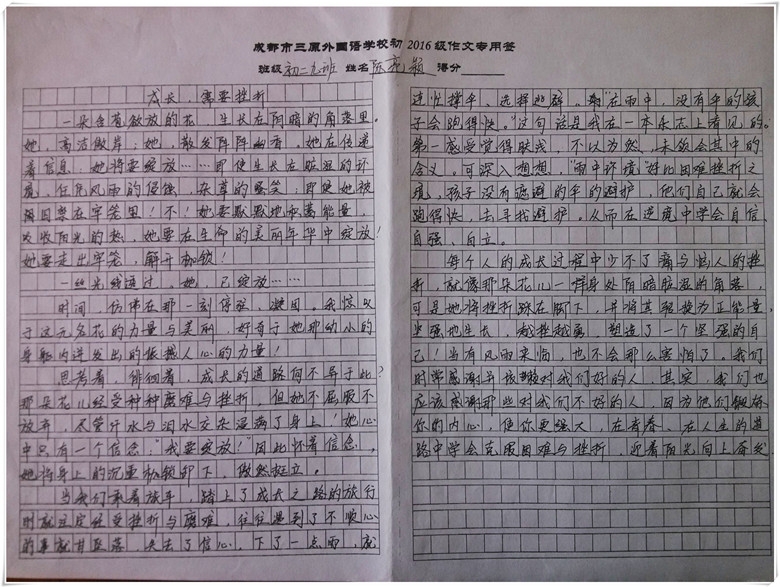 成都市三原外国语学校初2016级作文专用签
班级 初二九班 姓名 陈亮颖 得分
成长，需要挫折
一朵含苞欲放的花，生长在阴暗的角落里。
她，高洁傲岸；她，散发阵阵幽香，她在传递
着信息：她将要绽放……即使生长在脏湿的环
境，任凭风雨的侵蚀，杂草的嘲笑；即使她被
拇因禁在牢笼里！不！她要默默地积蓄能量，
吸收阳光的热，她要在生命的美丽年华中绽放！
她要走出牢笼，解开枷锁！
一丝光线透过，她，已绽放……
时间，仿佛在那一刻停驻、凝固。我惊叹
于这无名花的力量与美丽，好奇于她那幼小的
身躯内迸发出的振撼人心的力量！
思考着，徘徊着，成长的道路何不异于此？
那朵花儿经受种种磨难与挫折，但她不屈服不
放弃，尽管汗水与泪水交杂湿满了身上！她心
中只有一个信念：“我要绽放！”因此怀着信念，
她将身上的沉重松锁卸下，傲然挺立。
当我们乘着旅车，踏上了成长之路的旅行
时就注定经受挫折与磨难，往往遇到了不顺心
的事就甘堕落，失去了信心，下了一点雨，就
连忙撑伞、选择逃避。“在雨中，没有伞的孩
子会跑得快。”这句话是我在一本杂志上看见的。
第一感受觉得肤浅，不以为然，未领会其中的
含义。可深入想想，“雨中环境”好比困难挫折之
境，孩子没有遮避的伞的避护，他们自己就会
跑得快，去寻找避护。从而在逆境中学会自信、
自强、自立。
每个人的成长过程中少不了痛与恼人的挫
折，就像那朵花儿一样身处阴暗脏湿的角落，
可是她将挫折踩在脚下，并将其转换为正能量，
坚强地生长，越挫越勇，塑造了一个坚强的自
己！当有风雨来临，也不会那么害怕了。我们
时常感谢并被对我们好的人，其实，我们也
应该感谢那些对我们不好的人，因为他们锻炼
你的内心，使你更强大，在青春、在人生的道
路中学会克服困难与挫折，迎着阳光向上奋发